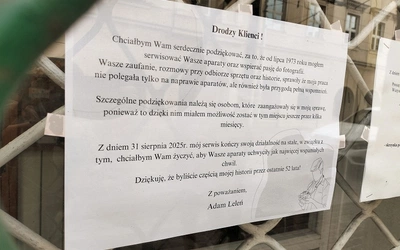 Drodzy Klienci !
Chciałbym Wam serdecznie podziękować, za to, że od lipca 1973 roku mogłem
serwisować Wasze aparaty oraz wspierać pasję do fotografii.
Wasze zaufanie, rozmowy przy odbiorze sprzętu oraz historie, sprawiły że moja praca
nie polegała tylko na naprawie aparatów, ale również była przygodą pełną wspomnień.
Szczególne podziękowania należą się osobom, które zaangażowały się w moją sprawę,
ponieważ to dzięki nim miałem możliwość zostać w tym miejscu jeszcze przez kilka
miesięcy.
Z dniem 31 sierpnia 2025r. mój serwis kończy swoją działalność na stałe, w związku z
tym, chciałbym Wam życzyć, aby Wasze aparaty uchwyciły jak najwięcej wspaniałych
chwil.
Dziękuję, że byliście częścią mojej historii przez ostatnie 52 lata!
Z poważaniem,
Adam Leleń